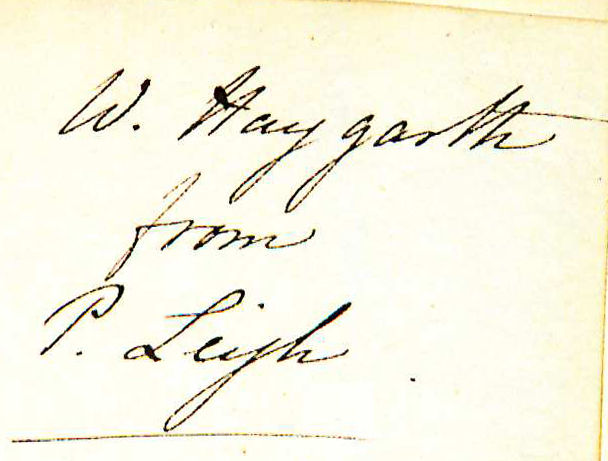 W. Haygarth
from
P. Leigh